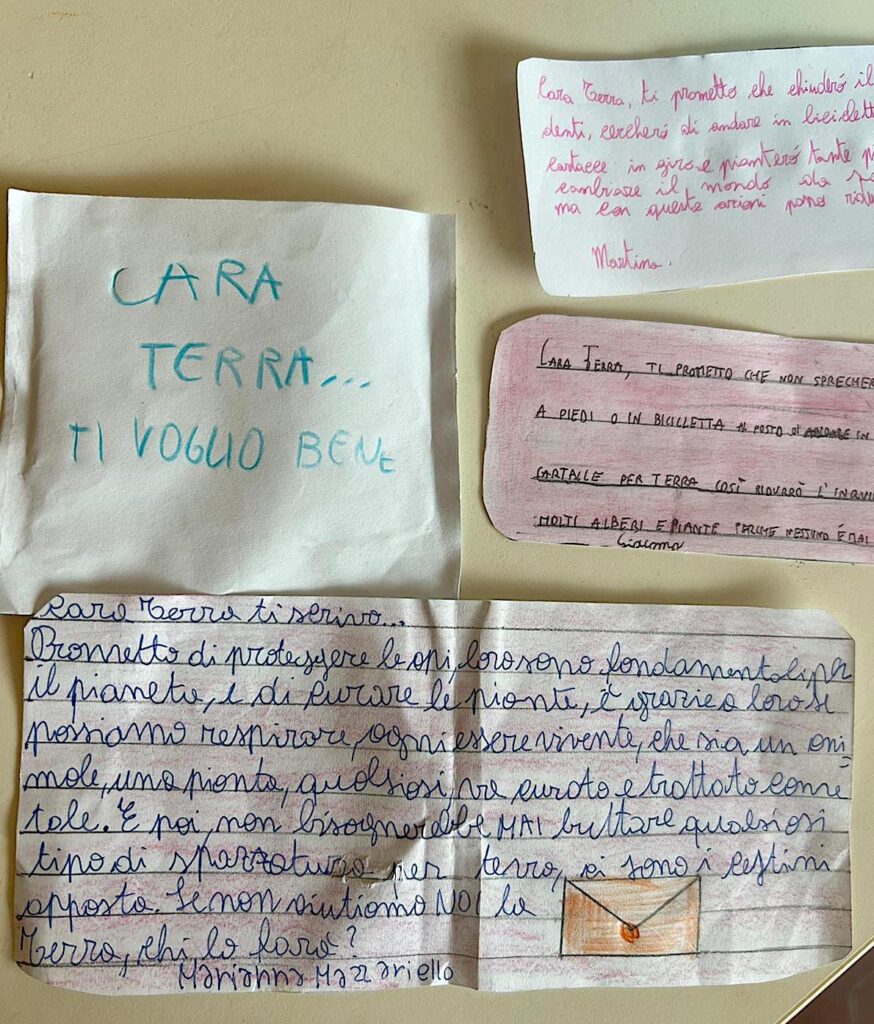 CARA
TERRA...
TI VOGLIO BENE
Cara Terra, ti prometto che chiuderó il
denti, cercheró di andare in biciclett
cartacce in giro e pianteró tante pi
cambiare il mondo da
ma con queste azioni posso
Martina.
CARA TERRA, TI PROMETTO CHE NON SPRECHER
A PIEDI O IN BICICLETTA AL POSTO DI ANDARE IN
CARTALLE PER TERRA COSÌ RIDURRÒ L'INQUI
MOLTI ALBERI E PIANTE PERCHE NESSUNO É MAI
Giacomo
Cara Terra ti scrivo...
Prometto di proteggere le api, loro sono fondamentali per
il pianeta, e di curare le piante, è grazie a loro se
possiamo respirare, ogni essere vivente, che sia un ani
male, una pianta, qualsiasi, va curato e trattato come
tale. E poi, non bisognerebbe MAI buttare qualsiasi
tipo di spazzatura per terra, ci sono i cestini
apposta. Se non aiutiamo NOI la
Terra, chi lo farà?
Marianna Mazzariello